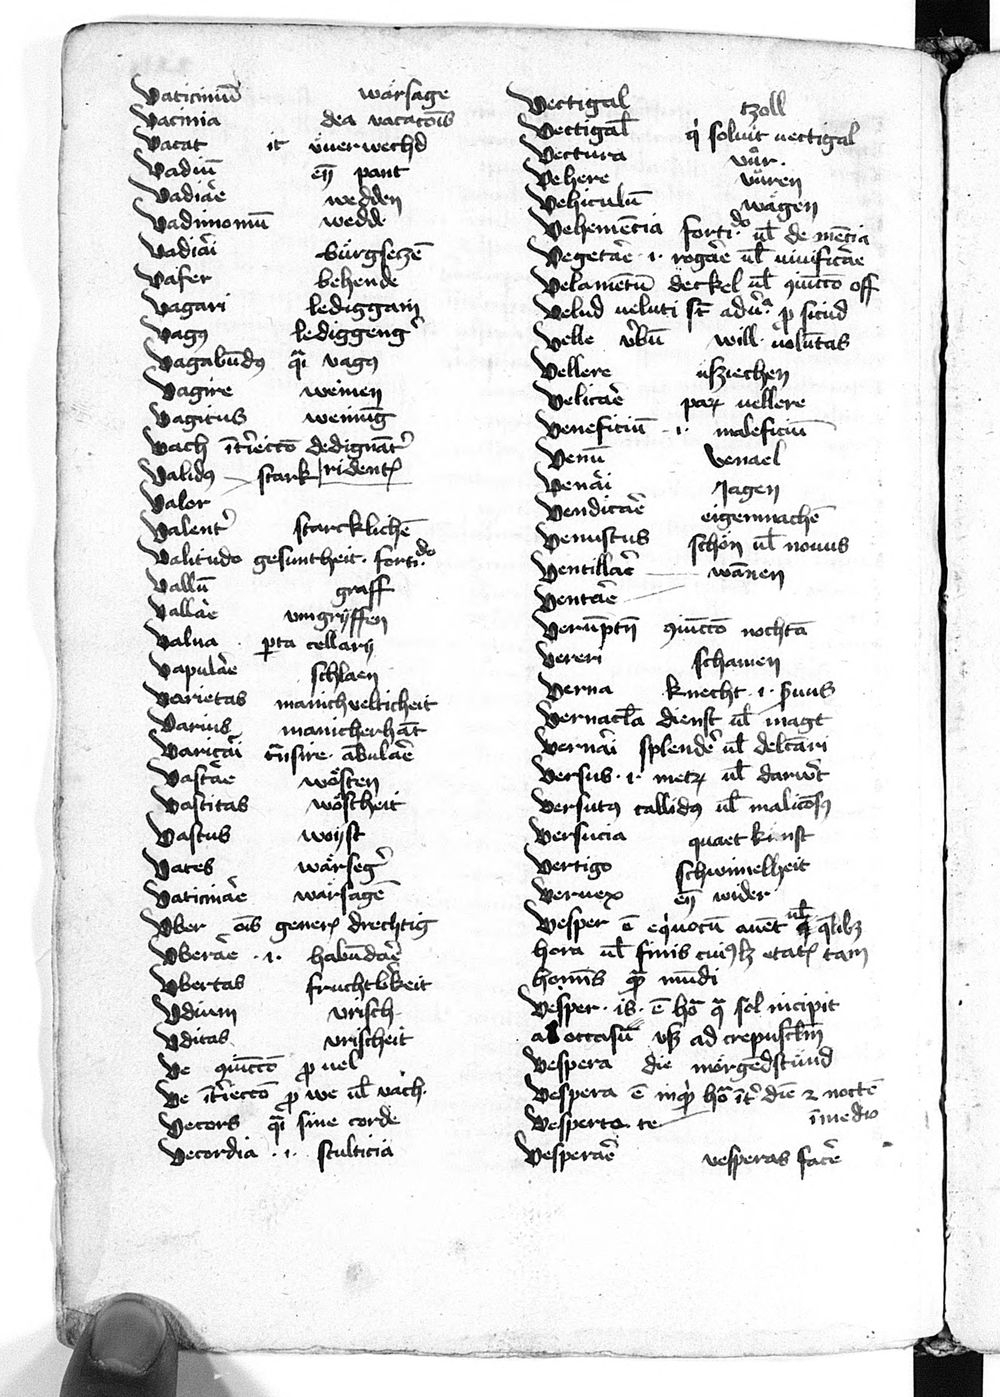 Vaticiniū wärsage
Vacinia dea vacacōis
Vacat it v̈uerwechd
Vadiū eÿ pant
Vadiar̄e wedden
Vadimoniū wedde
Vadiar̄i bürgseczē
Vafer behende
Vagari lediggan
Vagꝰ lediggenger̄
Vagabūdꝰ qᵃi vagꝰ
Vagire weinen
Vagitus weinūg
Vach īt̄iectō dedignāt̄
Validꝰ stark ridentꝭ
Valor
Valent̄ starcklichē
Valitudo gesuntheit. forti.do
Vallū graff
Vallar̄e vmgrÿffen
Valua p̱ta cellarij
Vapular̄e schlaen
Varietas manichueltickeit
Varius manicherhāt
Varicar̄i t̄nsire. ābular̄e
Vastar̄e wösten
Vastitas wöstheit
Vastus woÿst
Vates wärseger̄
Vaticinar̄e wärsagē
Vber ōis generꝭ drechtig
Vberar̄e .i. habūdar̄e
Vbertas fruchtbr̄keit
Vdium vrisch
Vditas vrischeit
Ve 9iūctō p̱ uel
Ve īt̄iectō p̱ we ul̄ vach.
Vecors qᵃi sine corde
Vecordia .i. stulticia
Vectigal tzoll
Vectigal̄ qͥ soluit uectigal
Vectura vůr.
Vehere vůren
Vehiculū wägen
Vehemēcia forti.do ul̄ de mēcia
Vegetar̄e .i. rogar̄e ul̄ uiuificar̄e
Velamētū deckel ul̄ 9iūctō off
Velud ueluti st̄ adu̇.ᵃ p̱ sicud
Velle v̄bū will. uolūtas
Vellere ußziechen
Velicar̄e parꝝ uellere
Veneficiū .i. maleficiū
Venū venael
Venar̄i Jagen
Vendicar̄e eigenmachē
Venustus schön ul̄ nouus
Ventillar̄e wānen
Ventar̄e
Verūptn̄ 9iūctō nochtā
Vereri schamen
Verna knecht .i. ẜuus
Vernacl̄a dienst ul̄ magt
Vernar̄i splender̄ ul̄ delc̄ari
Versus .i. metꝝ ul̄ darwert̄
Versutꝰ callidꝰ ul̄ malicōsꝰ
Versucia quaet kunst
Vertigo schwimelheit
Veruex eÿ wider
Vesper ē eqͥuocū auēt ul̄ q̄libꝫ
hora ul̄ finis cuiꝰlꝫ etatꝭ tam
homīs qᵃ mūdi
Vesper .is. ē ho᷈ qᵃ sol incipit
ab occasū vß ad crepuscl̄m
Vespera die morgēdstund
Vespera ē īnqͥ ho᷈ īt̄ diē ⁊ noctē
Vesperta te īmedio
Vesperar̄e vesperas facē